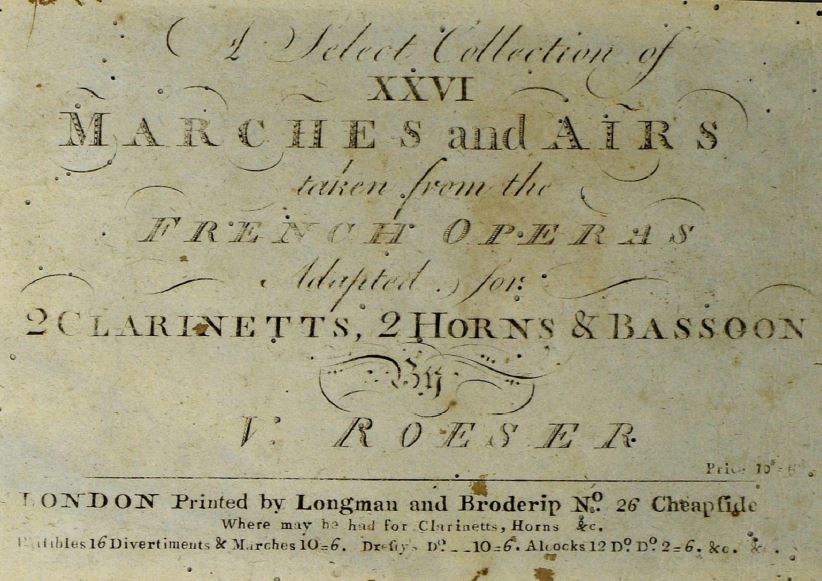 A Select Collection of
XXVI
MARCHES and AIRS
taken from the
FRENCH OPERAS
Adapted for
2 CLARINETTS, 2 HORNS & BASSOON
By
V. ROESER
Price 10s=6
LONDON Printed by Longman and Broderip No. 26 Cheapside
Where may be had for Clarinetts, Horns &c.
16 Divertiments & Marches 10=6. Do__10=6. Alcocks 12 Do Do 2=6. &c. &c.